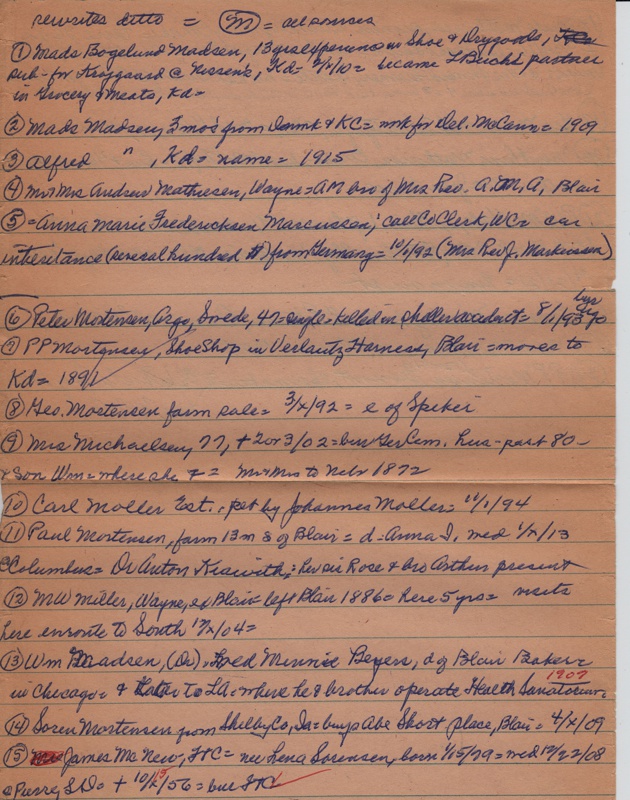 rewrites ditto = (M) = all sources
① Mads Bogelund Madsen, 13 yrs experience in Shoe & Drygoods,
Kd = 2/x/10 = became partner
in Grocery & Meats, Kd =
② Mads Madsen, 3 mos from Denmk & KC = wrk for Del. McCann = 1909
③ Alfred " , Kd = name = 1915
④ Mr Mrs Andrew Mathiesen, Wayne = AM bro of Mrs Rev. A. M. A, Blair
⑤ = Anna Marie Frederichsen Marcussen, call Co Clerk, WC =
inheritance (several hundred #) from Germany = 10/x/92 (Mrs Rev J. Markussen)
⑥ Peter Mortensen, Argo, Swede, 47 = single = killed in accident = 8/1/93
⑦ PP Mortensen, Shoe Shop in Harness, Blair = moves to
Kd = 1891
⑧ Geo. Mortensen farm sale = 3/x/92 = e of Spiker
⑨ Mrs Michaelsen, 77, + 2 or 3/02 = bur Ger Cem. hus - past 80 -
& son Wm = where she + = Mr Mrs to Nebr 1872
⑩ Carl Moller Est. - pet by Johannes Moller = 11/1/94
⑪ Paul Mortensen, farm 13 m s of Blair = d - Anna I, wed 1/x/13
@ Columbus = Dr Anton , her sis Rose & bro Arthur present
⑫ MW Miller, Wayne, ex Blair = left Blair 1886 = here 5 yrs = visits
here enroute to South 12/x/04 =
⑬ Wm Madsen, (Dr), wed Minnie Beyers, d of Blair Baker =
in Chicago = & later to LA = where he & brother operate Health Sanatorium = 1907
⑭ Soren Mortensen from Shelby Co, Ia = buys Abe Short place, Blair = 4/x/09
⑮ James Mc New, FtC = nee Lena Sorensen, born 1/15/79 = wed 12/22/08
@ Pierre, S.D. + 10/15/56 = bur FtC